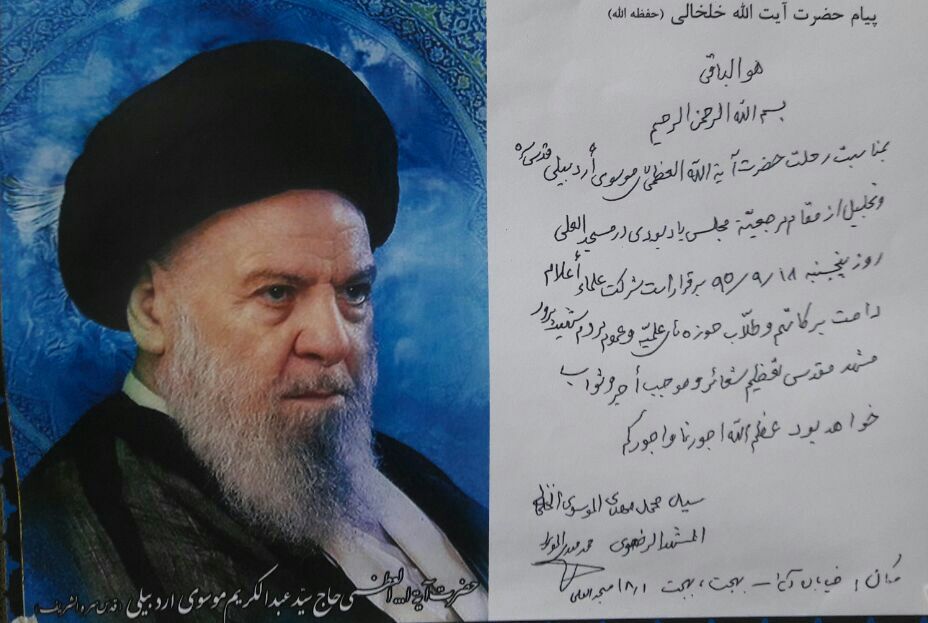 پیام حضرت آیت الله خلخالی (حفظه الله)
هو الباقی
بسم الله الرحمن الرحیم
بمناسبت رحلت حضرت آیة الله العظمی موسوی أردبیلی قدس سره
وتجلیل از مقام مرجعیّة مجلس یادبودی در مسجد
روز پنجشنبه ۹۵/۹/۱۸ برقرار است شرکت علماء أعلام
دامت برکاتهم و طلّاب حوزه های علمیّه و عموم مردم شهید پرور
مشهد مقدس تعظیم شعائر و موجب أجر و ثواب
خواهد بود عظم الله اجورنا واجورکم
سید محمد مهدی الموسوی الخلخالی
المشهد الرضوی
مکان خیابان آیة ا... بهجت، بهجت ۱۸/۱ مسجد
حضرت آیة ا... العظمی حاج سیّد عبدالکریم موسوی اردبیلی (قدس سره الشریف)